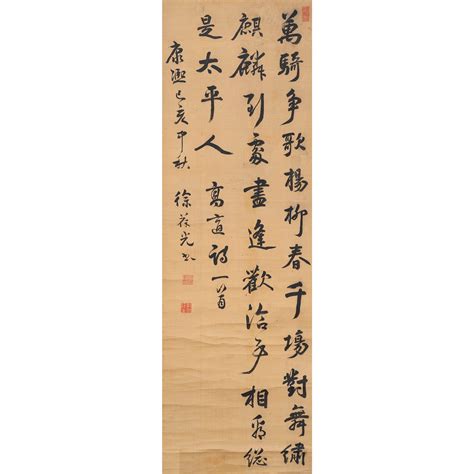 萬騎争歌楊柳春千場對舞繡
麒麟到處盡逢歡洽事相看総
是太平人 高適詩一首
康熙己亥中秋 徐葆光書